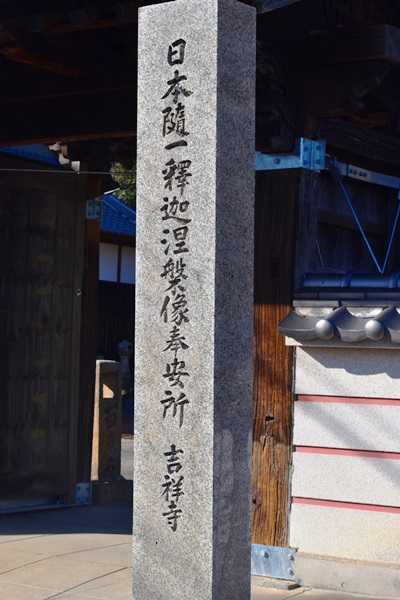 日本隨一釋迦涅槃像奉安所 吉祥寺